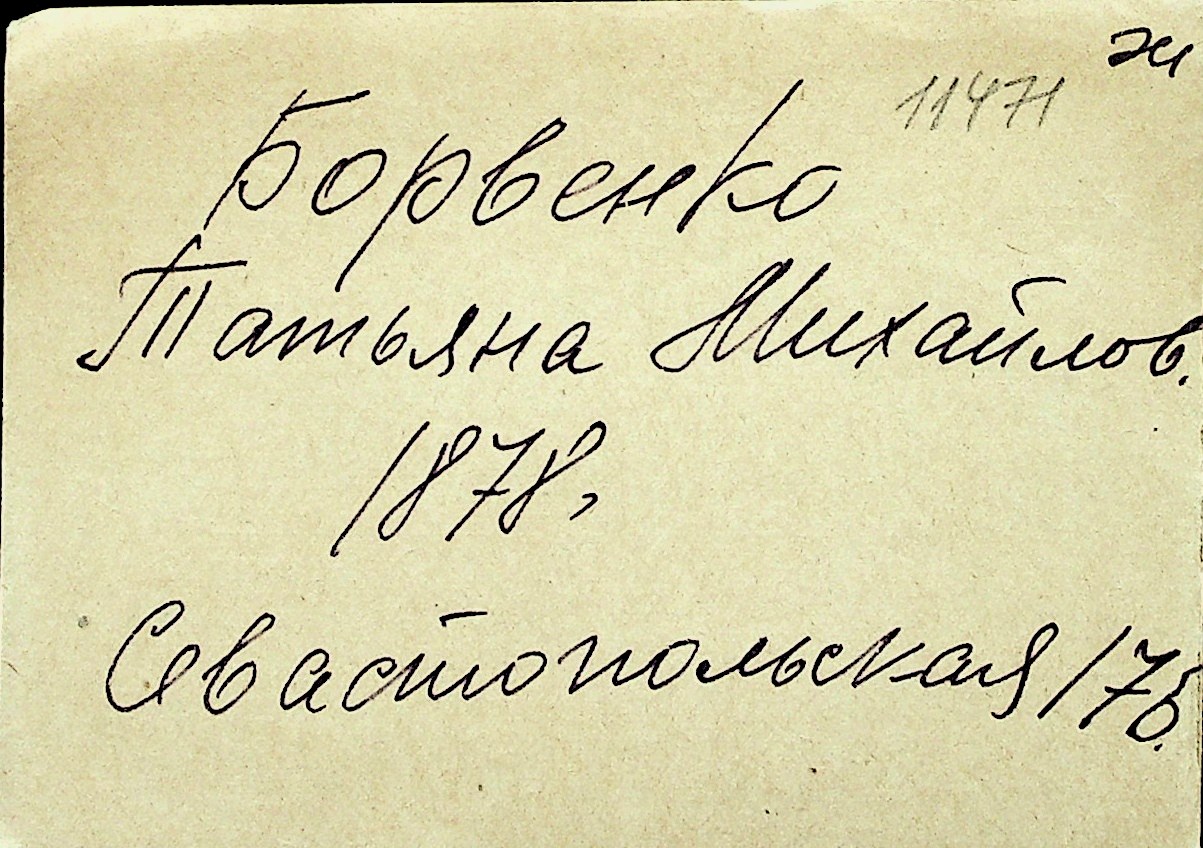 ж
11471
Борвенко
Татьяна Михайлов.
1878,
Севастопольская 176.